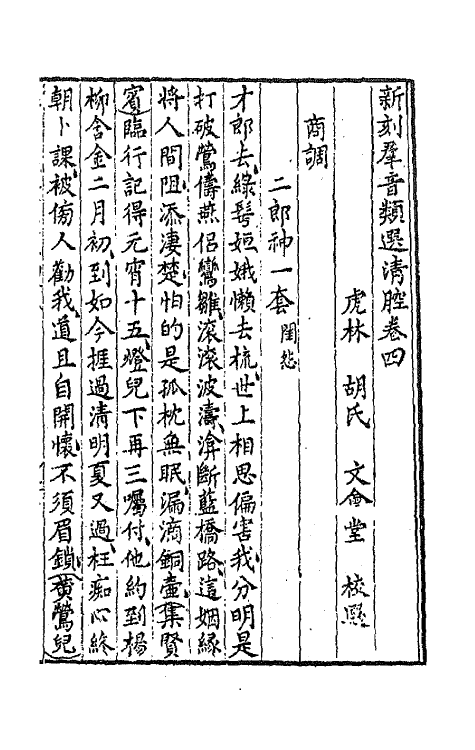 新刻羣音類選清腔卷四
虎林 胡氏 文會堂 校選
商調
二郎神一套 閨愁
才郎去綠鬢姮娥懶去梳世上相思偏害我分明是
打破鶯儔燕侶鸞雛滾滾波濤渰斷藍橋路這姻緣
將人間阻添淒楚怕的是孤枕無眠漏滴銅壺集賢
賓臨行記得元宵十五燈兒下再三囑付他約到楊
柳含金二月初到如今捱過清明夏又過枉痴心終
朝卜課被傍人勸我道且自開懷不須眉鎖黃鶯兒